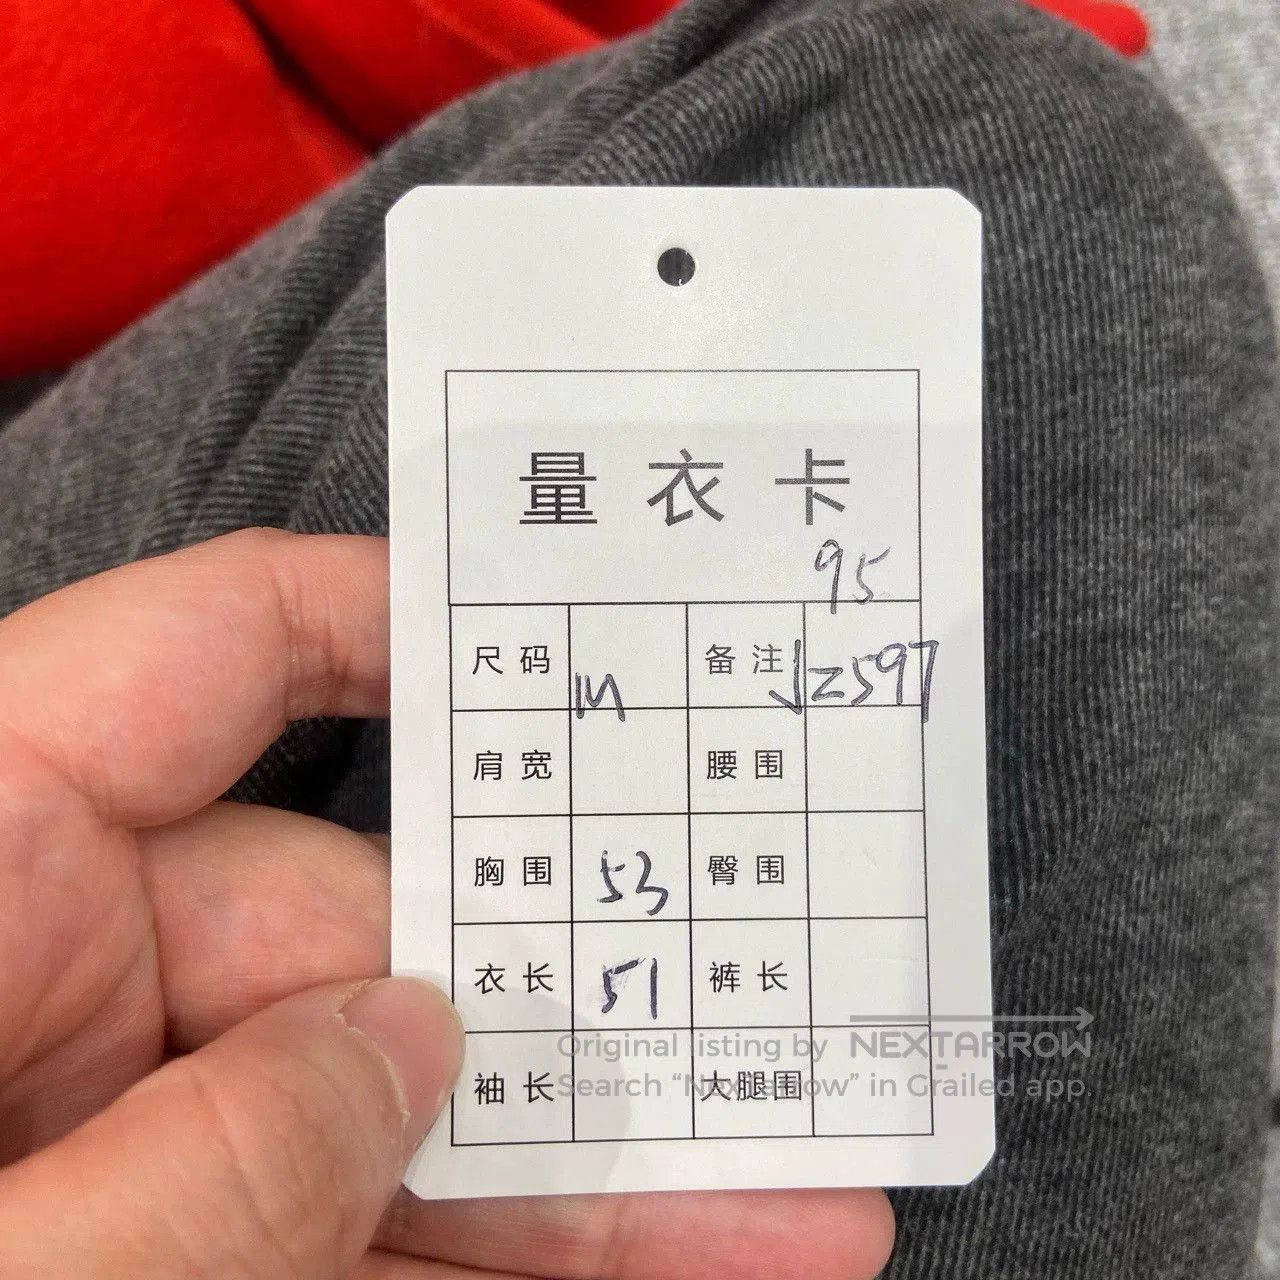 量衣卡
95
尺码 M 备注 J2597
肩宽 腰围
胸围 53 臀围
衣长 51 裤长
袖长 大腿围
Original listing by NEXTARROW
Search “Nextarrow” in Grailed app.